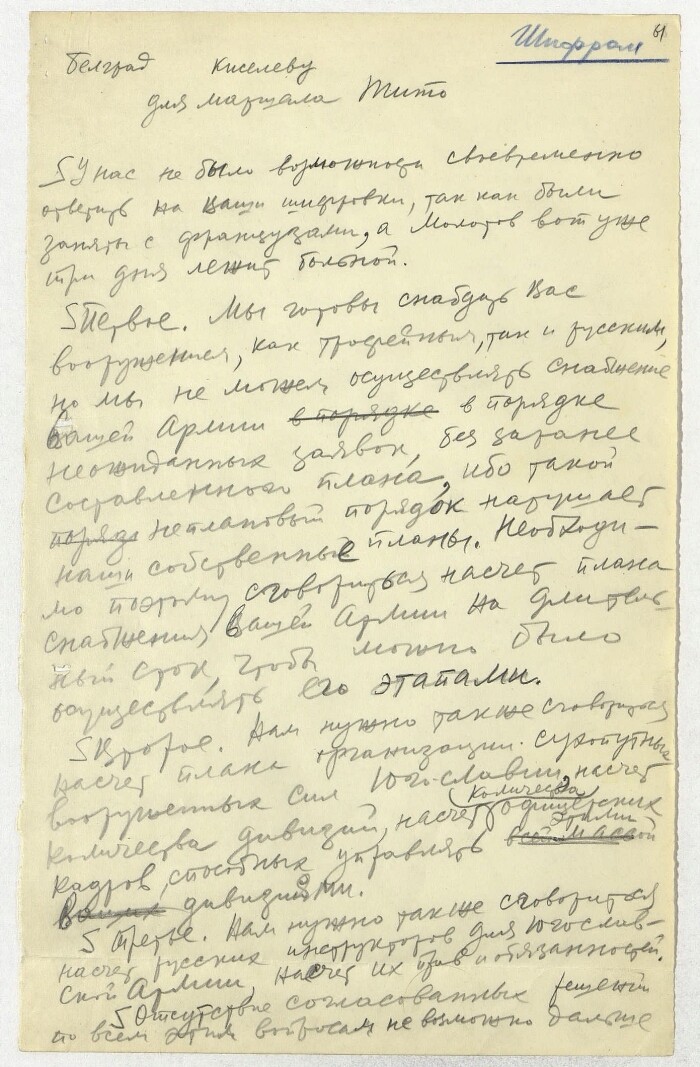 Шифром
61
Белград Киселеву
для маршала Тито
У нас не было возможности своевременно
ответить на Ваши шифровки, так как были
заняты с французами, а Молотов вот уже
три дня лежит больной.
Первое. Мы готовы снабдить Вас
вооружением, как трофейным, так и русским,
но мы не можем осуществлять снабжение
Вашей Армии в порядке в порядке
неожиданных заявок, без заранее
составленного плана, ибо такой
порядо неплановый порядок нарушает
наши собственные планы. Необходи-
мо поэтому сговориться насчет плана
снабжения Вашей Армии на длитель-
ный срок, чтобы можно было
осуществлять его этапами.
Второе. Нам нужно также сговориться
насчет плана организации сухопутных
вооруженных сил Югославии, насчет
количества дивизий, насчет количества офицерских
кадров, способных управлять всей массой этими
дивизиями.
Третье. Нам нужно также сговориться
насчет русских инструкторов для Югослав-
ской Армии, насчет их прав и обязанностей.
Отсутствие согласованных решений
по всем этим вопросам невозможно дальше